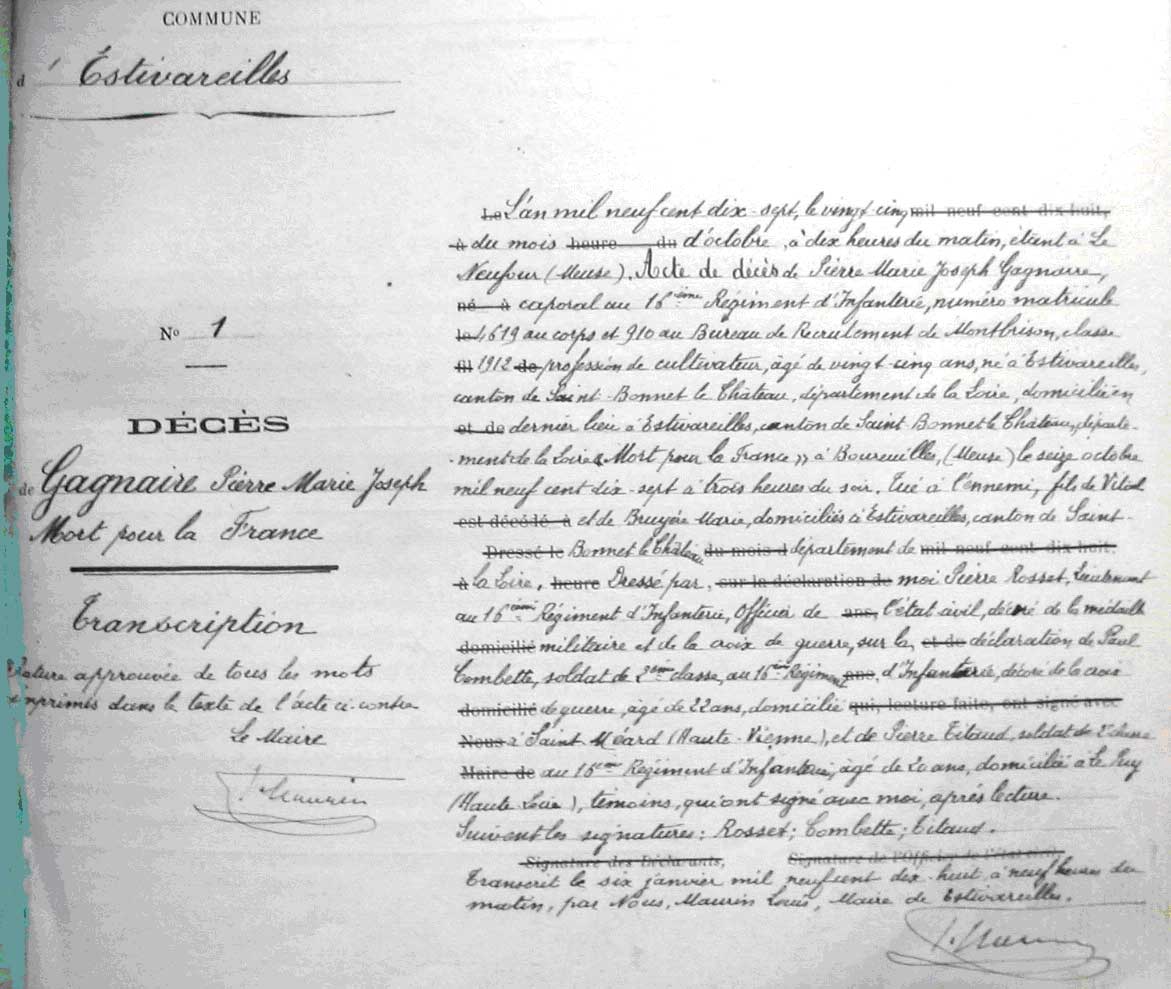 COMMUNE
d' Estivareilles
No 1
DÉCÈS
de Gagnaire Pierre Marie Joseph
Mort pour la France
Transcription
Rature approuvée de tous les mots
imprimés dans le texte de l'acte ci-contre
Le Maire
Le L'an mil neuf cent dix-sept, le vingt-cinq mil neuf cent dix-huit,
à du mois heure du d'octobre, à dix heures du matin, étant à Le
Neufour (Meuse). Acte de décès de Pierre Marie Joseph Gagnaire,
né à caporal au 16ième Régiment d'Infanterie, numéro matricule
le 4619 au corps et 910 au Bureau de Recrutement de Montbrison, classe
fil 1912 de profession de cultivateur, âgé de vingt-cinq ans, né à Estivareilles,
canton de Saint-Bonnet le Château, département de la Loire, domicilié en
et de dernier lieu à Estivareilles, canton de Saint Bonnet le Château, départe-
-ment de la Loire « Mort pour la France » à Boureuilles, (Meuse) le seize octobre
mil neuf cent dix-sept à trois heures du soir. Tué à l'ennemi, fils de Vital
est décédé à et de Bruyère Marie, domiciliés à Estivareilles, canton de Saint-
Dressé le Bonnet le Château du mois d département de mil neuf cent dix huit.
à la Loire, heure Dressé par, sur la déclaration de moi Pierre Rosset, Lieutenant
au 16ième Régiment d'Infanterie, Officier de ans, l'état civil, décoré de la médaille
domicilié militaire et de la croix de guerre, sur la et de déclaration de Paul
Combette, soldat de 2ième classe, au 16ième Régiment ans, d'Infanterie, décoré de la croix
domicilié de guerre, âgé de 22 ans, domicilié qui, lecture faite, ont signé avec
Nous à Saint Méard (Haute-Vienne), et de Pierre Titaud, soldat de 2e classe
Maire de au 16ième Régiment d'Infanterie, âgé de 20 ans, domicilié à Le Puy
(Haute Loire), témoins, qui ont signé avec moi, après lecture.
Suivent les signatures: Rosset; Combette; Titaud.
Signature des Déclarants, Signature de l'Officier de l'état civil,
Transcrit le six janvier mil neuf cent dix-huit, à neuf heures du
matin, par Nous, Maurin Louis, Maire de Estivareilles.